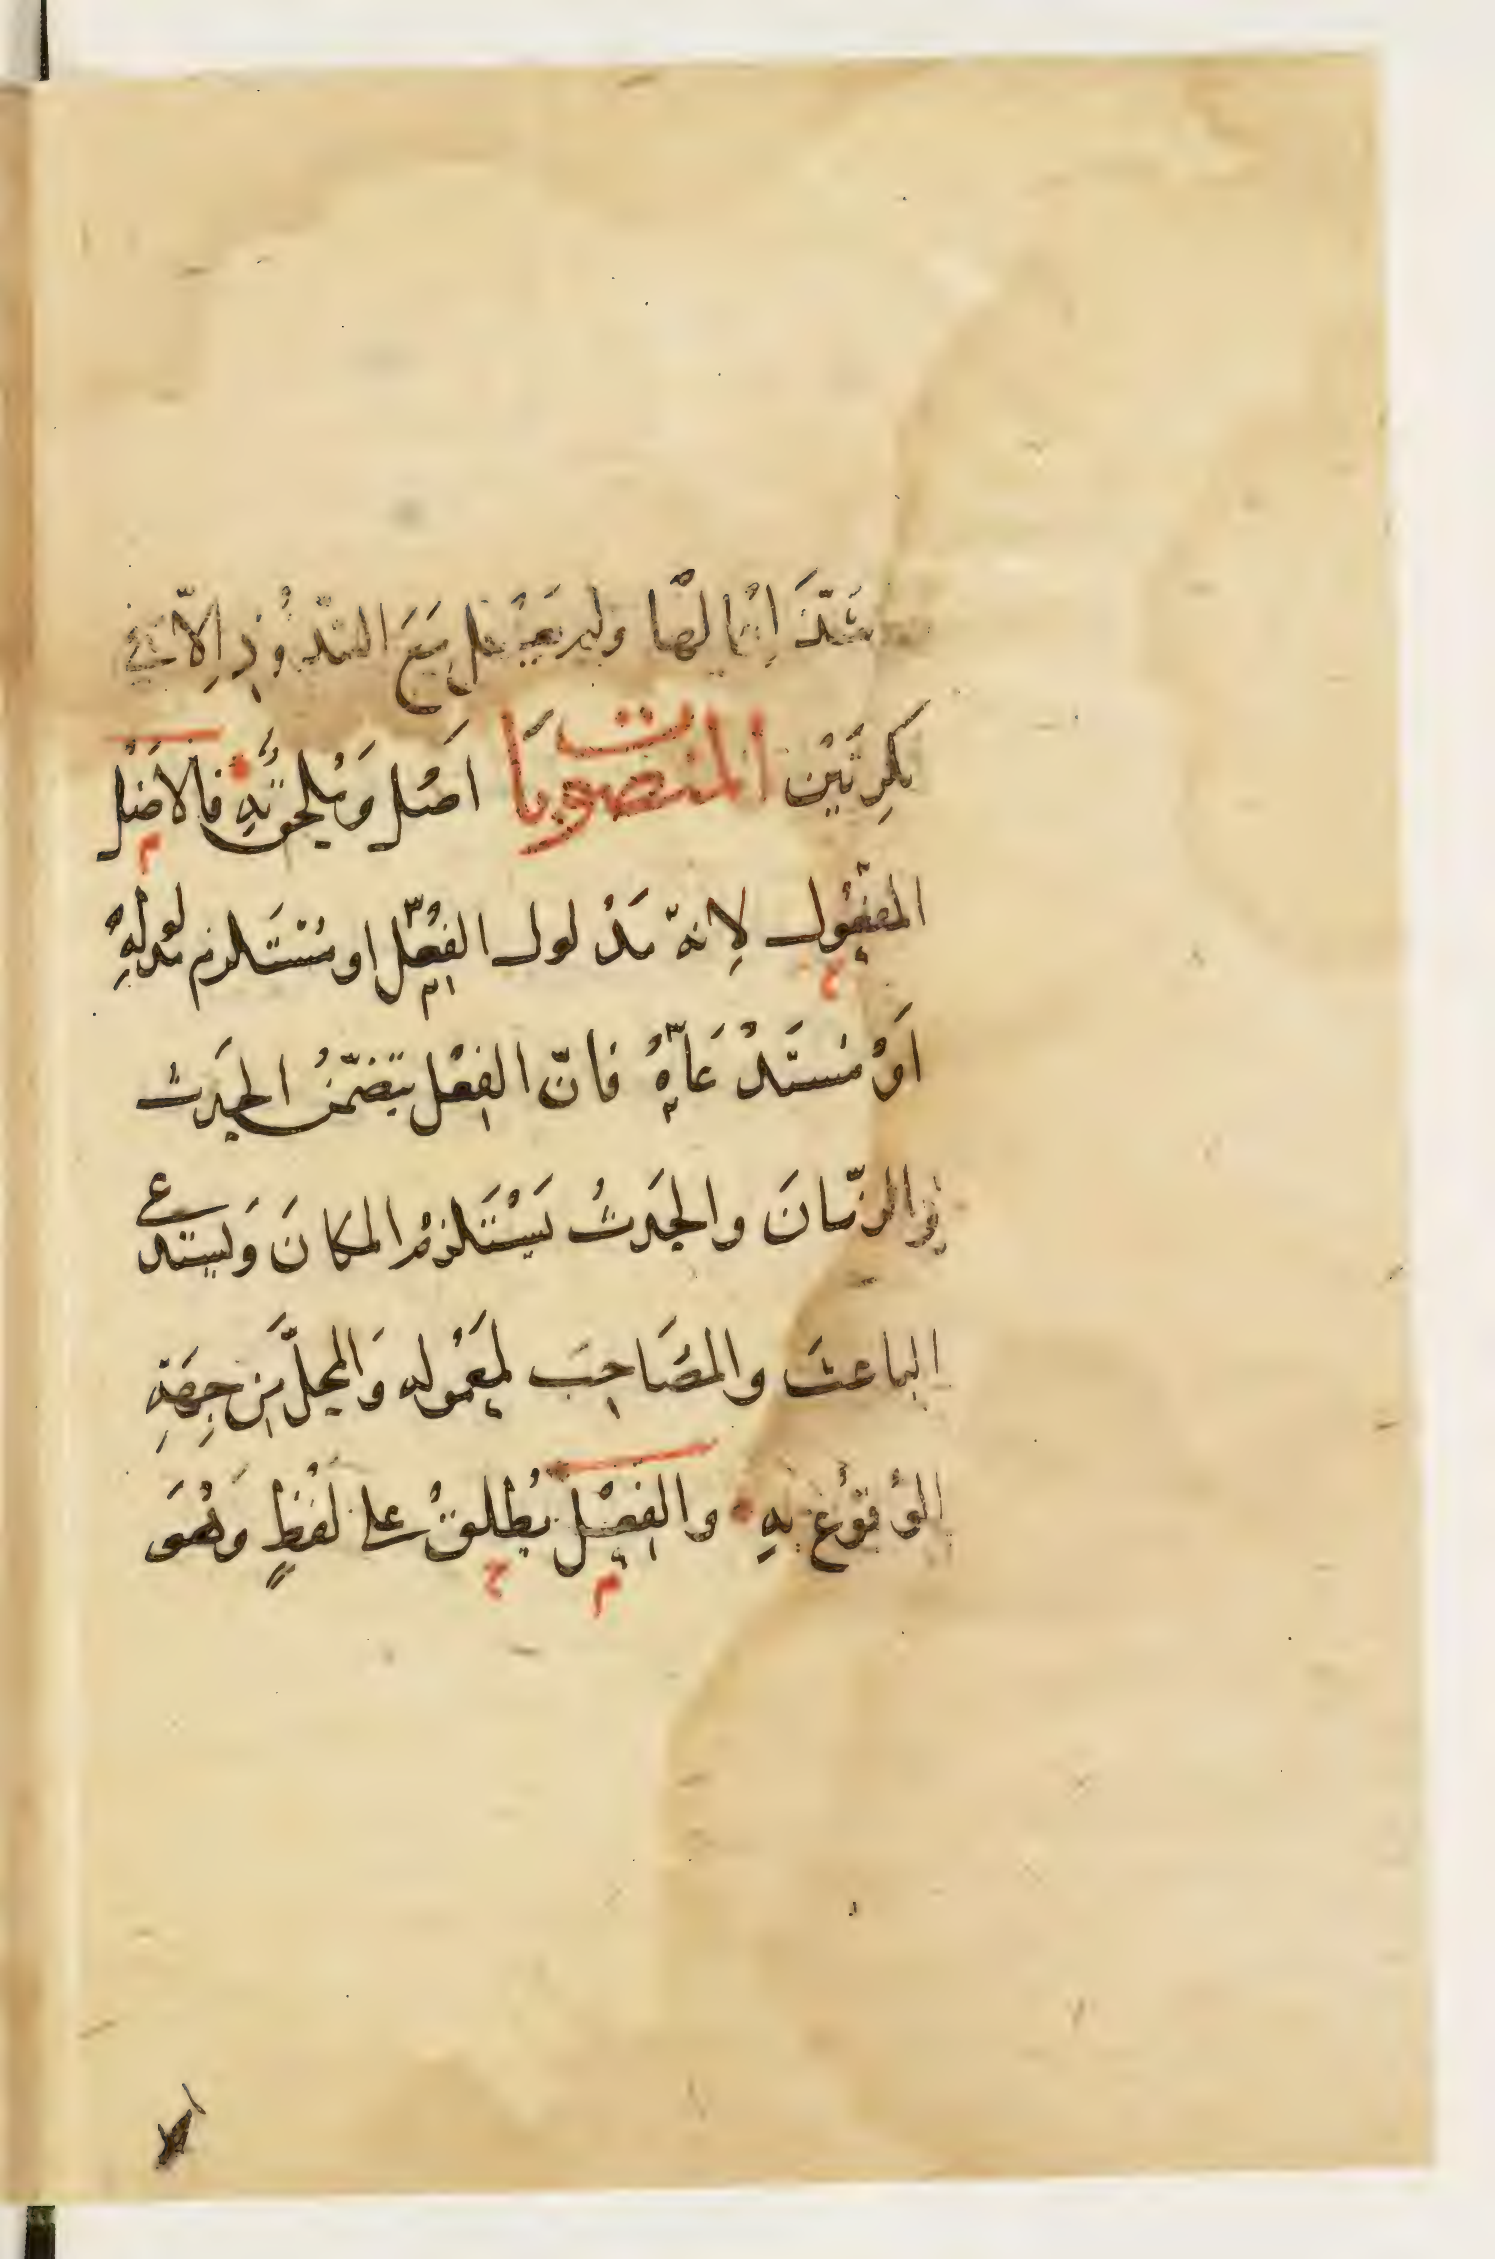 شَذَّ اِعْمالُها ولم تَعْمَل مَعَ الشّذُوذِ اِلّا في
نَكِرَتَيْن المنصوبَات اَصْل وَمُلحَق بِهِ فالاَصْل
المفعُول لِانهّ مَدْلول الفِعْل او مُسْتَلزم لمدلولهِ
اَوْ مُستَدْعَاهُ فانّ الفِعْل يتضمّنُ الحَدَث
والزّمانَ والحَدَثُ يَسْتَلزمُ المكانَ وَيستدعي
الباعثَ والمصَاحِبَ لمعْمُوله وَالمحلَّ مِن جِهَةِ
الوُقوُع بهِ والفِعْل يُطلقُ على لَفْظٍ وَهُوَ